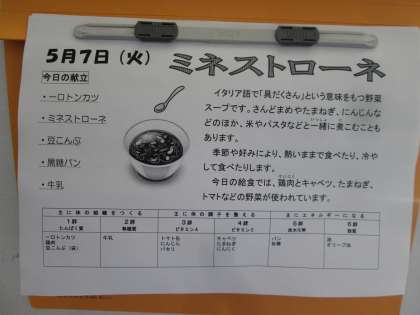 5月7日（火） ミネストローネ
今日の献立
・一口トンカツ
・ミネストローネ
・豆こんぶ
・黒糖パン
・牛乳
イタリア語で「具だくさん」という意味をもつ野菜
スープです。さんどまめやたまねぎ、にんじんな
どのほか、米やパスタなどと一緒に煮こむことも
あります。
季節や好みにより、熱いままで食べたり、冷や
して食べたりします。
今日の給食では、鶏肉とキャベツ、たまねぎ、
トマトなどの野菜が使われています。
主に体の組織をつくる 主に体の調子を整える 主にエネルギーになる
1群 2群 3群 4群 5群 6群
たんぱく質 無機質 ビタミンA ビタミンC 炭水化物 脂質
一口トンカツ 牛乳 トマト缶 キャベツ パン 油
鶏肉 にんじん たまねぎ オリーブ油
豆こんぶ（袋） パセリ にんにく